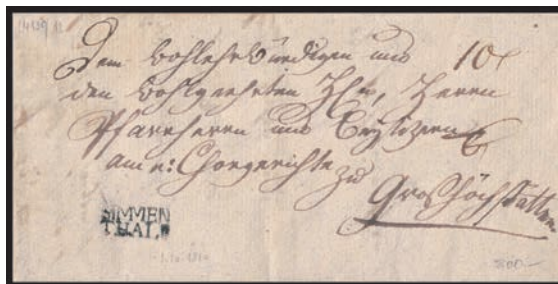 Dem Wohlehrwürdigen und 10
den Wohlgeehrten Hhn, Herren
Pfarrherren und Beysizeren
am e: Chorgerichte zu
Großhöchstetten
SIMMEN
THAL